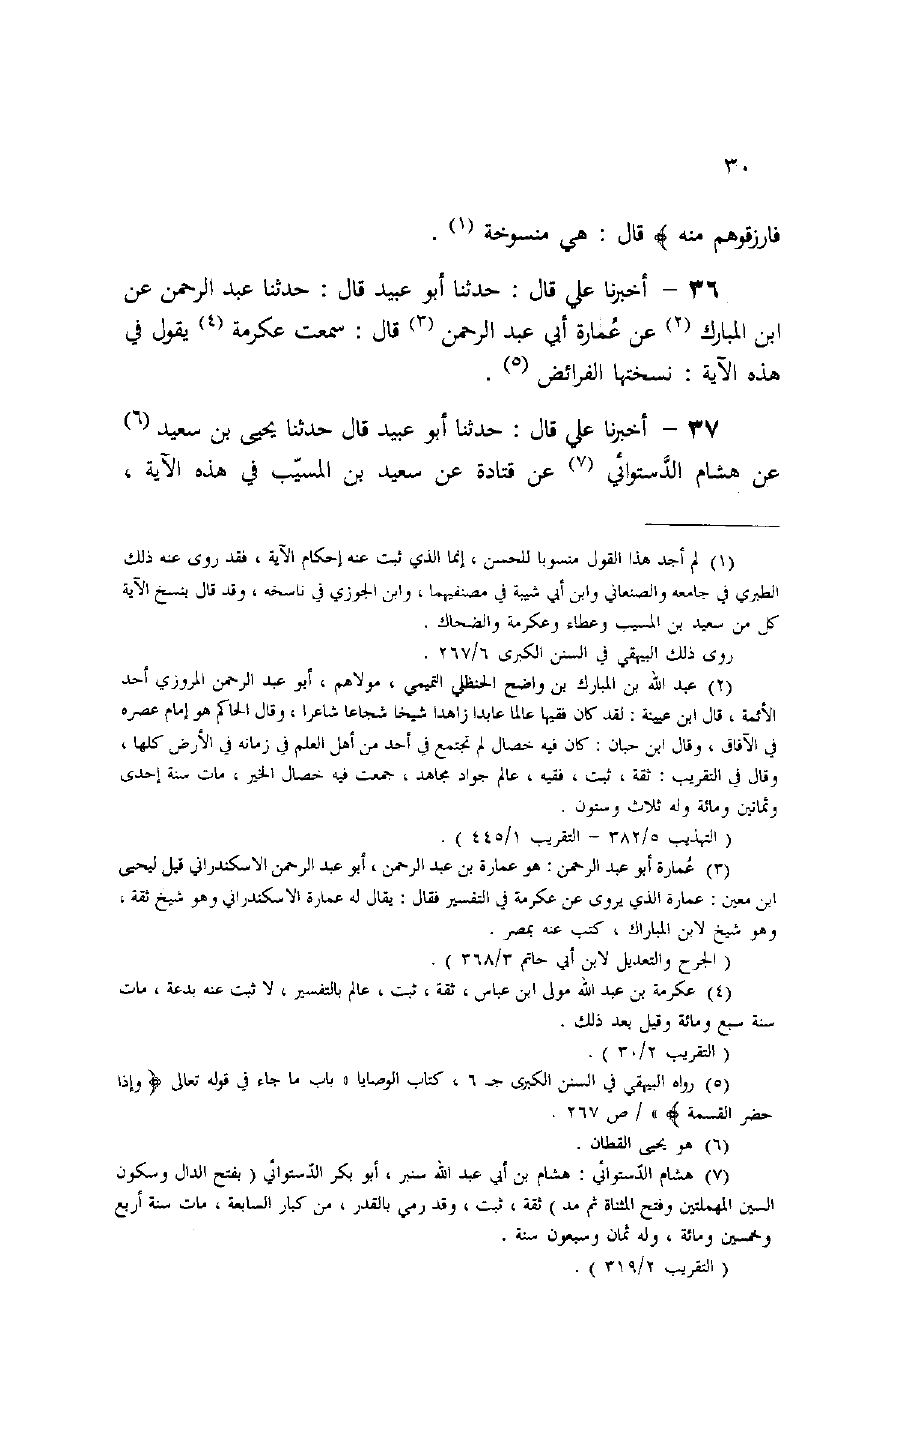 ٣٠
فارزقوهم منه ﴾ قال : هي منسوخة (١) .
٣٦ – أخبرنا علي قال : حدثنا أبو عبيد قال : حدثنا عبد الرحمن عن
ابن المبارك (٢) عن عُمارة أبي عبد الرحمن (٣) قال : سمعت عكرمة (٤) يقول في
هذه الآية : نسختها الفرائض (٥) .
٣٧ – أخبرنا علي قال : حدثنا أبو عبيد قال حدثنا يحيى بن سعيد (٦)
عن هشام الدَّستوائي (٧) عن قتادة عن سعيد بن المسيّب في هذه الآية ،
(١) لم أجد هذا القول منسوبا للحسن ، إنما الذي ثبت عنه إحكام الآية ، فقد روى عنه ذلك
الطبري في جامعه والصنعاني وابن أبي شيبة في مصنفيهما ، وابن الجوزي في ناسخه ، وقد قال بنسخ الآية
كل من سعيد بن المسيب وعطاء وعكرمة والضحاك .
روى ذلك البيهقي في السنن الكبرى ٢٦٧/٦ .
(٢) عبد الله بن المبارك بن واضح الحنظلي التميمي ، مولاهم ، أبو عبد الرحمن المروزي أحد
الأئمة ، قال ابن عيينة : لقد كان فقيها عالما عابدا زاهدا شيخا شجاعا شاعرا ، وقال الحاكم هو إمام عصره
في الآفاق ، وقال ابن حبان : كان فيه خصال لم تجتمع في أحد من أهل العلم في زمانه في الأرض كلها ،
وقال في التقريب : ثقة ، ثبت ، فقيه ، عالم جواد مجاهد ، جمعت فيه خصال الخير ، مات سنة إحدى
وثمانين ومائة وله ثلاث وستون .
( التهذيب ٣٨٢/٥ – التقريب ٤٤٥/١ ) .
(٣) عُمارة أبو عبد الرحمن : هو عمارة بن عبد الرحمن ، أبو عبد الرحمن الاسكندراني قيل ليحيى
ابن معين : عمارة الذي يروى عن عكرمة في التفسير فقال : يقال له عمارة الاسكندراني وهو شيخ ثقة ،
وهو شيخ لابن المباراك ، كتب عنه بمصر .
( الجرح والتعديل لابن أبي حاتم ٣٦٨/٣ ) .
(٤) عكرمة بن عبد الله مولى ابن عباس ، ثقة ، ثبت ، عالم بالتفسير ، لا ثبت عنه بدعة ، مات
سنة سبع ومائة وقيل بعد ذلك .
( التقريب ٣٠/٢ ) .
(٥) رواه البيهقي في السنن الكبرى جـ ٦ ، كتاب الوصايا « باب ما جاء في قوله تعالى ﴿ وإذا
حضر القسمة ﴾ » / ص ٢٦٧ .
(٦) هو يحيى القطان .
(٧) هشام الدّستوائي : هشام بن أبي عبد الله سنبر ، أبو بكر الدّستوائي ( بفتح الدال وسكون
السين المهملتين وفتح المثناة ثم مد ) ثقة ، ثبت ، وقد رمي بالقدر ، من كبار السابعة ، مات سنة أربع
وخمسين ومائة ، وله ثمان وسبعون سنة .
( التقريب ٣١٩/٢ ) .